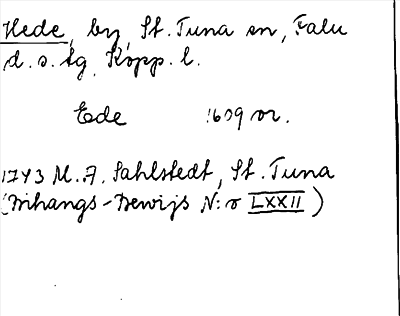 Hede, by, St. Tuna sn, Falu
d. s. lg Kopp. l.
Ede 1609 or.
1743 M. A. Sahlstedt, St. Tuna
(Bihangs-Bewijs N:o LXXII)